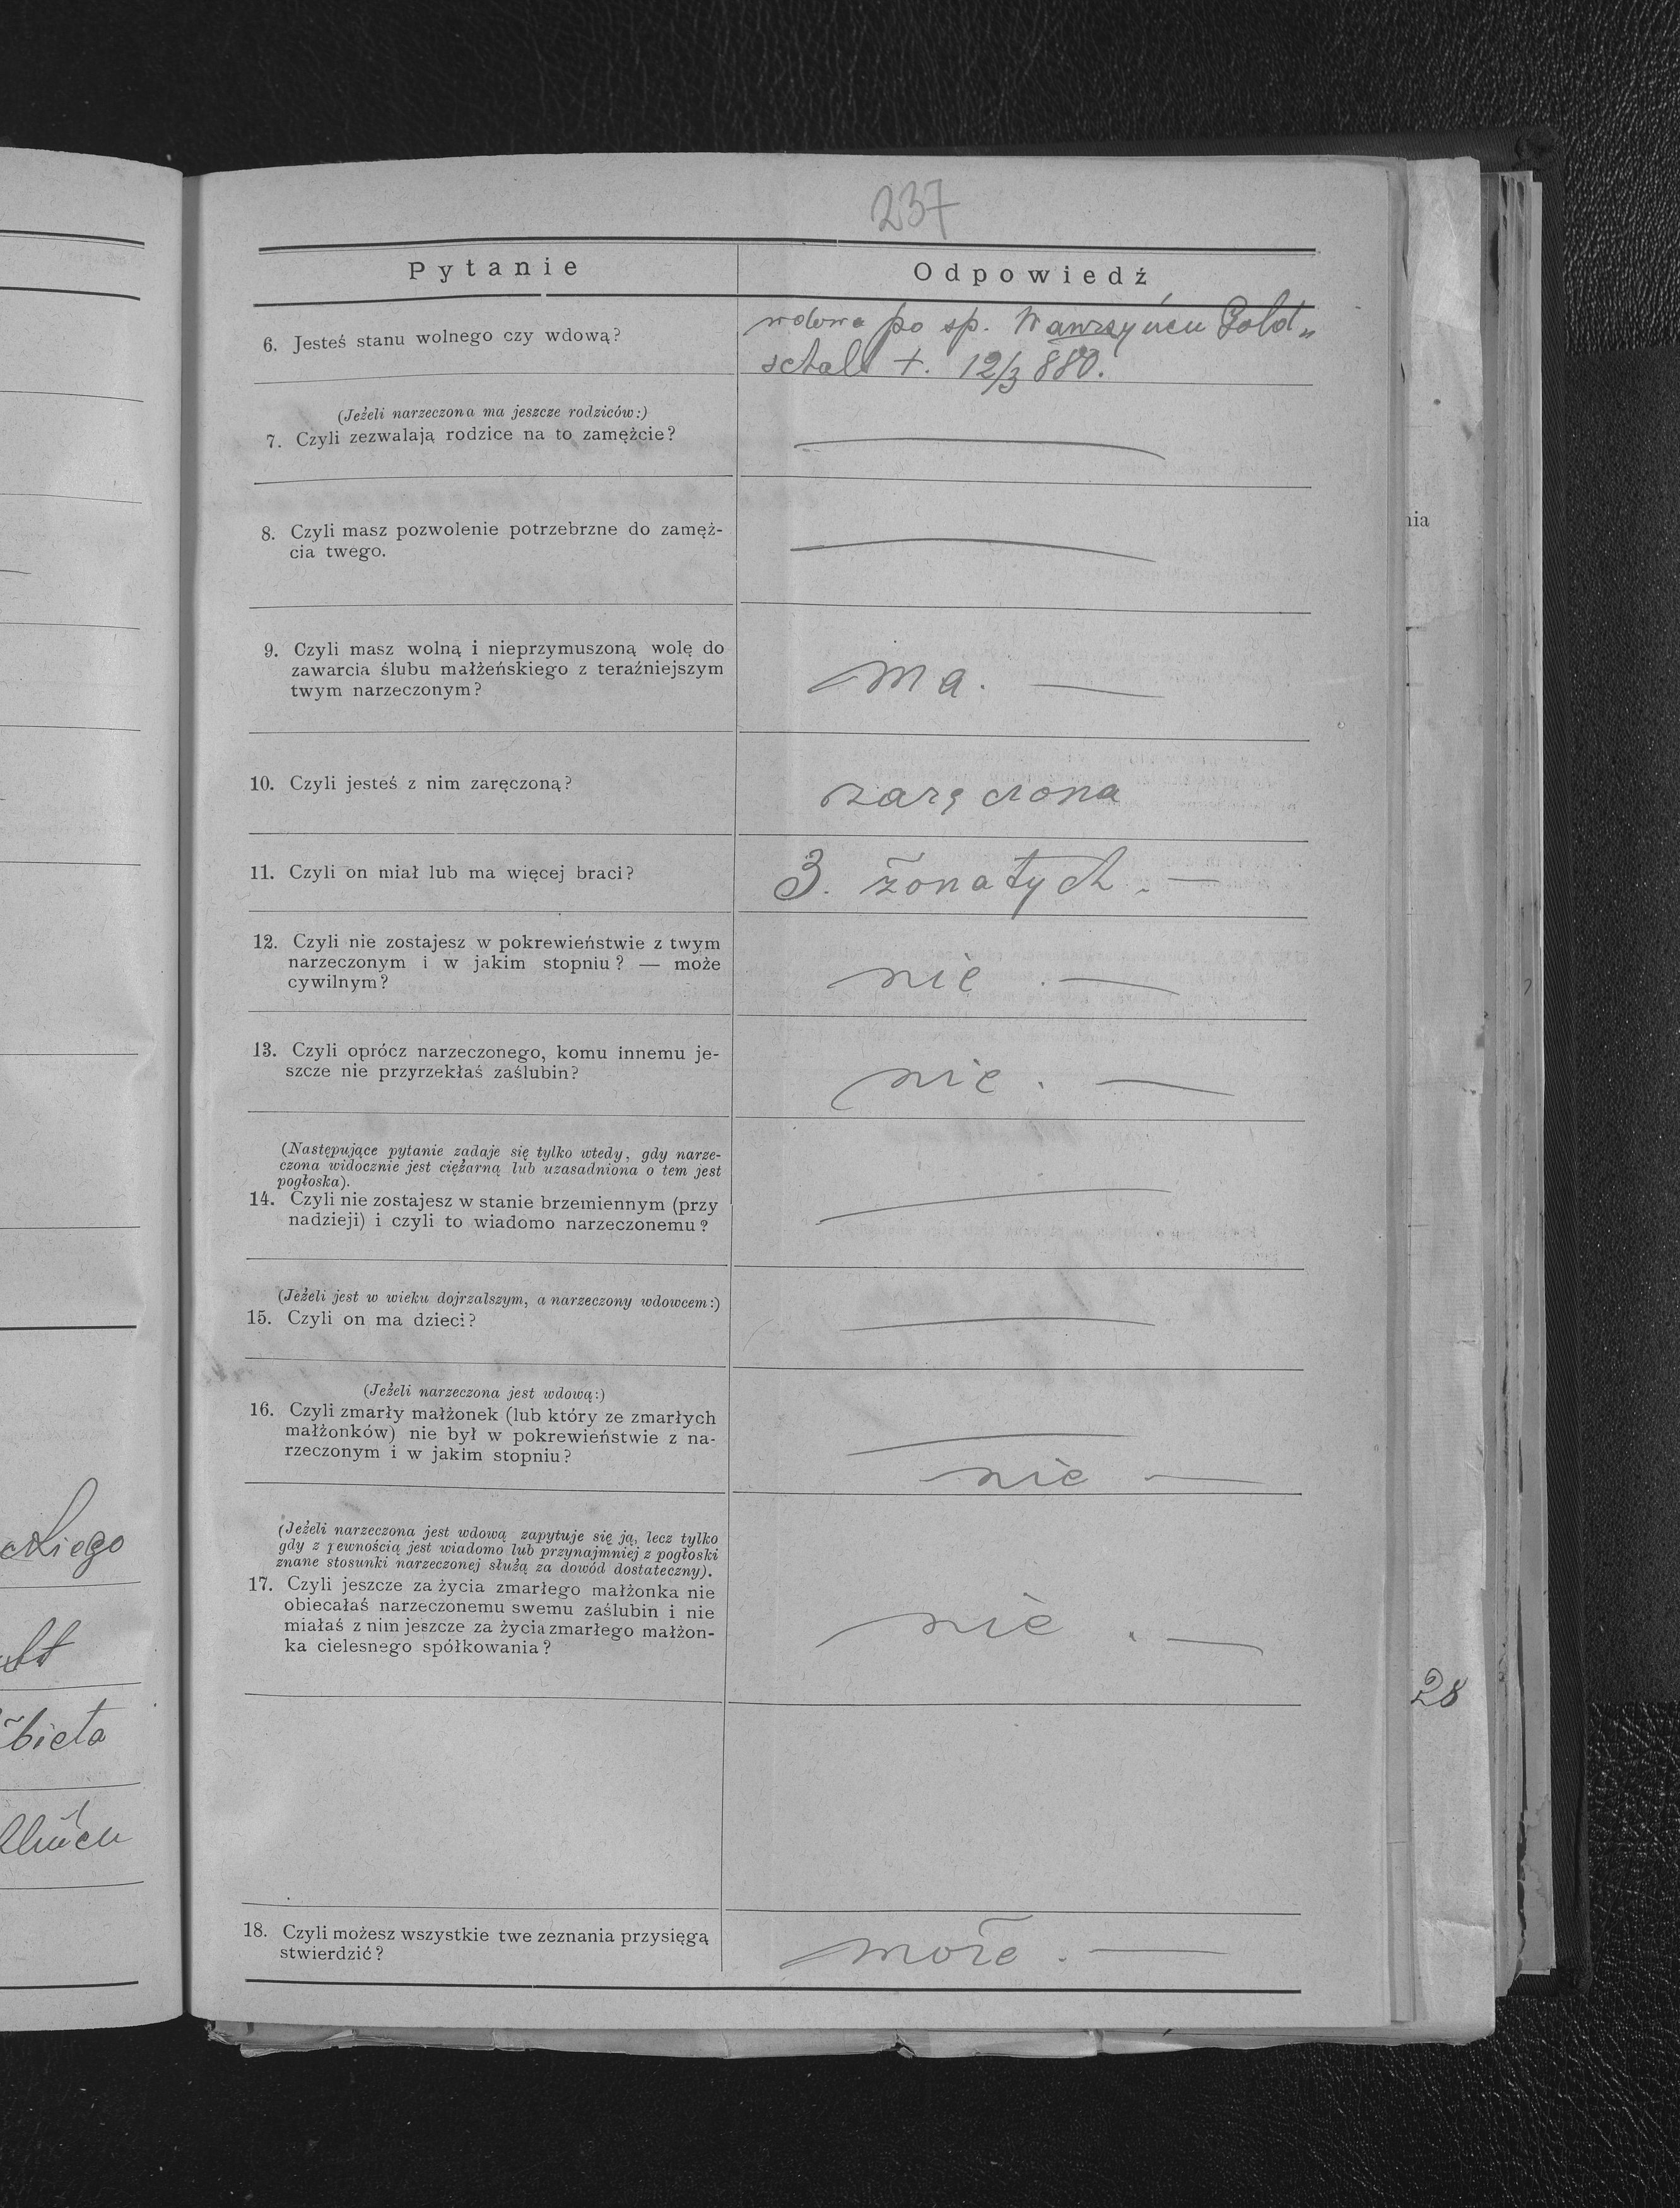 237
Pytanie
Odpowiedź
6. Jesteś stanu wolnego czy wdową?
wdowa po sp. Wawrzyńcu Gold„
schalt +. 12/3 880.
(Jeżeli narzeczona ma jeszcze rodziców:)
7. Czyli zezwalają rodzice na to zamężcie?
8. Czyli masz pozwolenie potrzebrzne do zamęż-
cia twego.
9. Czyli masz wolną i nieprzymuszoną wolę do
zawarcia ślubu małżeńskiego z teraźniejszym
twym narzeczonym?
ma. —
10. Czyli jesteś z nim zaręczoną?
zaręczona
11. Czyli on miał lub ma więcej braci?
3. żonatych. —
12. Czyli nie zostajesz w pokrewieństwie z twym
narzeczonym i w jakim stopniu? — może
cywilnym?
nie . —
13. Czyli oprócz narzeczonego, komu innemu je-
szcze nie przyrzekłaś zaślubin?
nie . —
(Następujące pytanie zadaje się tylko wtedy, gdy narze-
czona widocznie jest ciężarną lub uzasadniona o tem jest
pogłoska).
14. Czyli nie zostajesz w stanie brzemiennym (przy
nadzieji) i czyli to wiadomo narzeczonemu?
(Jeżeli jest w wieku dojrzalszym, a narzeczony wdowcem:)
15. Czyli on ma dzieci?
(Jeżeli narzeczona jest wdową:)
16. Czyli zmarły małżonek (lub który ze zmarłych
małżonków) nie był w pokrewieństwie z na-
rzeczonym i w jakim stopniu?
nie —
(Jeżeli narzeczona jest wdową zapytuje się ją, lecz tylko
gdy z pewnością jest wiadomo lub przynajmniej z pogłoski
znane stosunki narzeczonej służą za dowód dostateczny).
17. Czyli jeszcze za życia zmarłego małżonka nie
obiecałaś narzeczonemu swemu zaślubin i nie
miałaś z nim jeszcze za życia zmarłego małżon-
ka cielesnego spółkowania?
nie . —
18. Czyli możesz wszystkie twe zeznania przysięgą
stwierdzić?
może . —
ckiego
bieta
nia
28